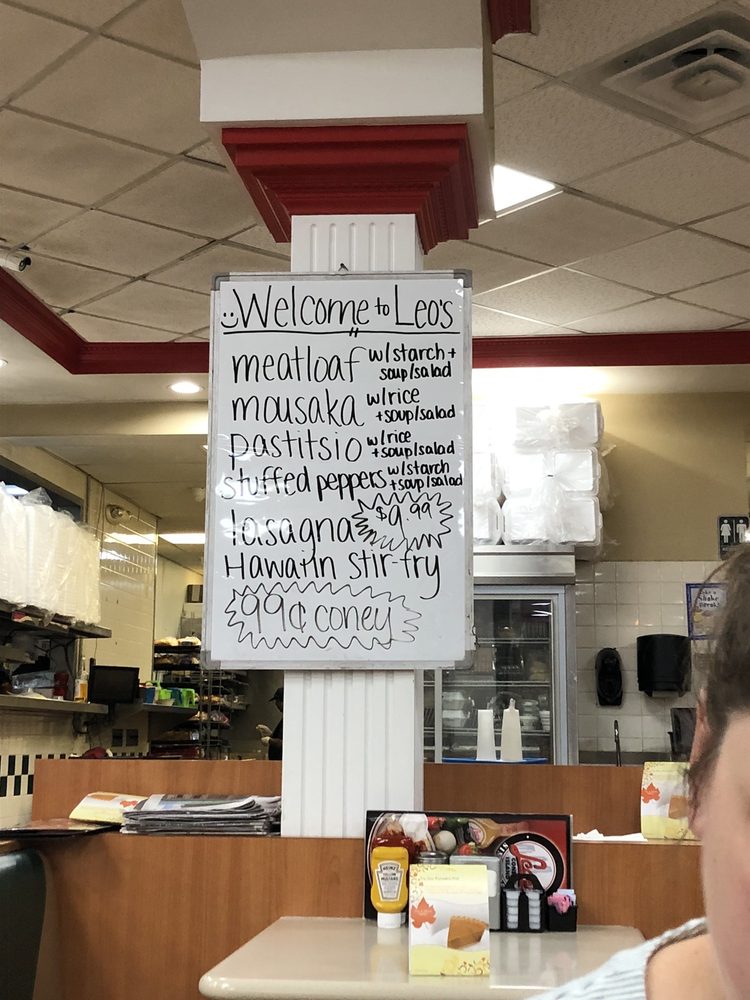 Welcome to Leo's
meatloaf w/starch + soup/salad
mousaka w/rice + soup/salad
pastitsio w/rice + soup/salad
stuffed peppers w/starch + soup/salad
lasagna $9.99
Hawaiin Stir-fry
99¢ coney
HEINZ